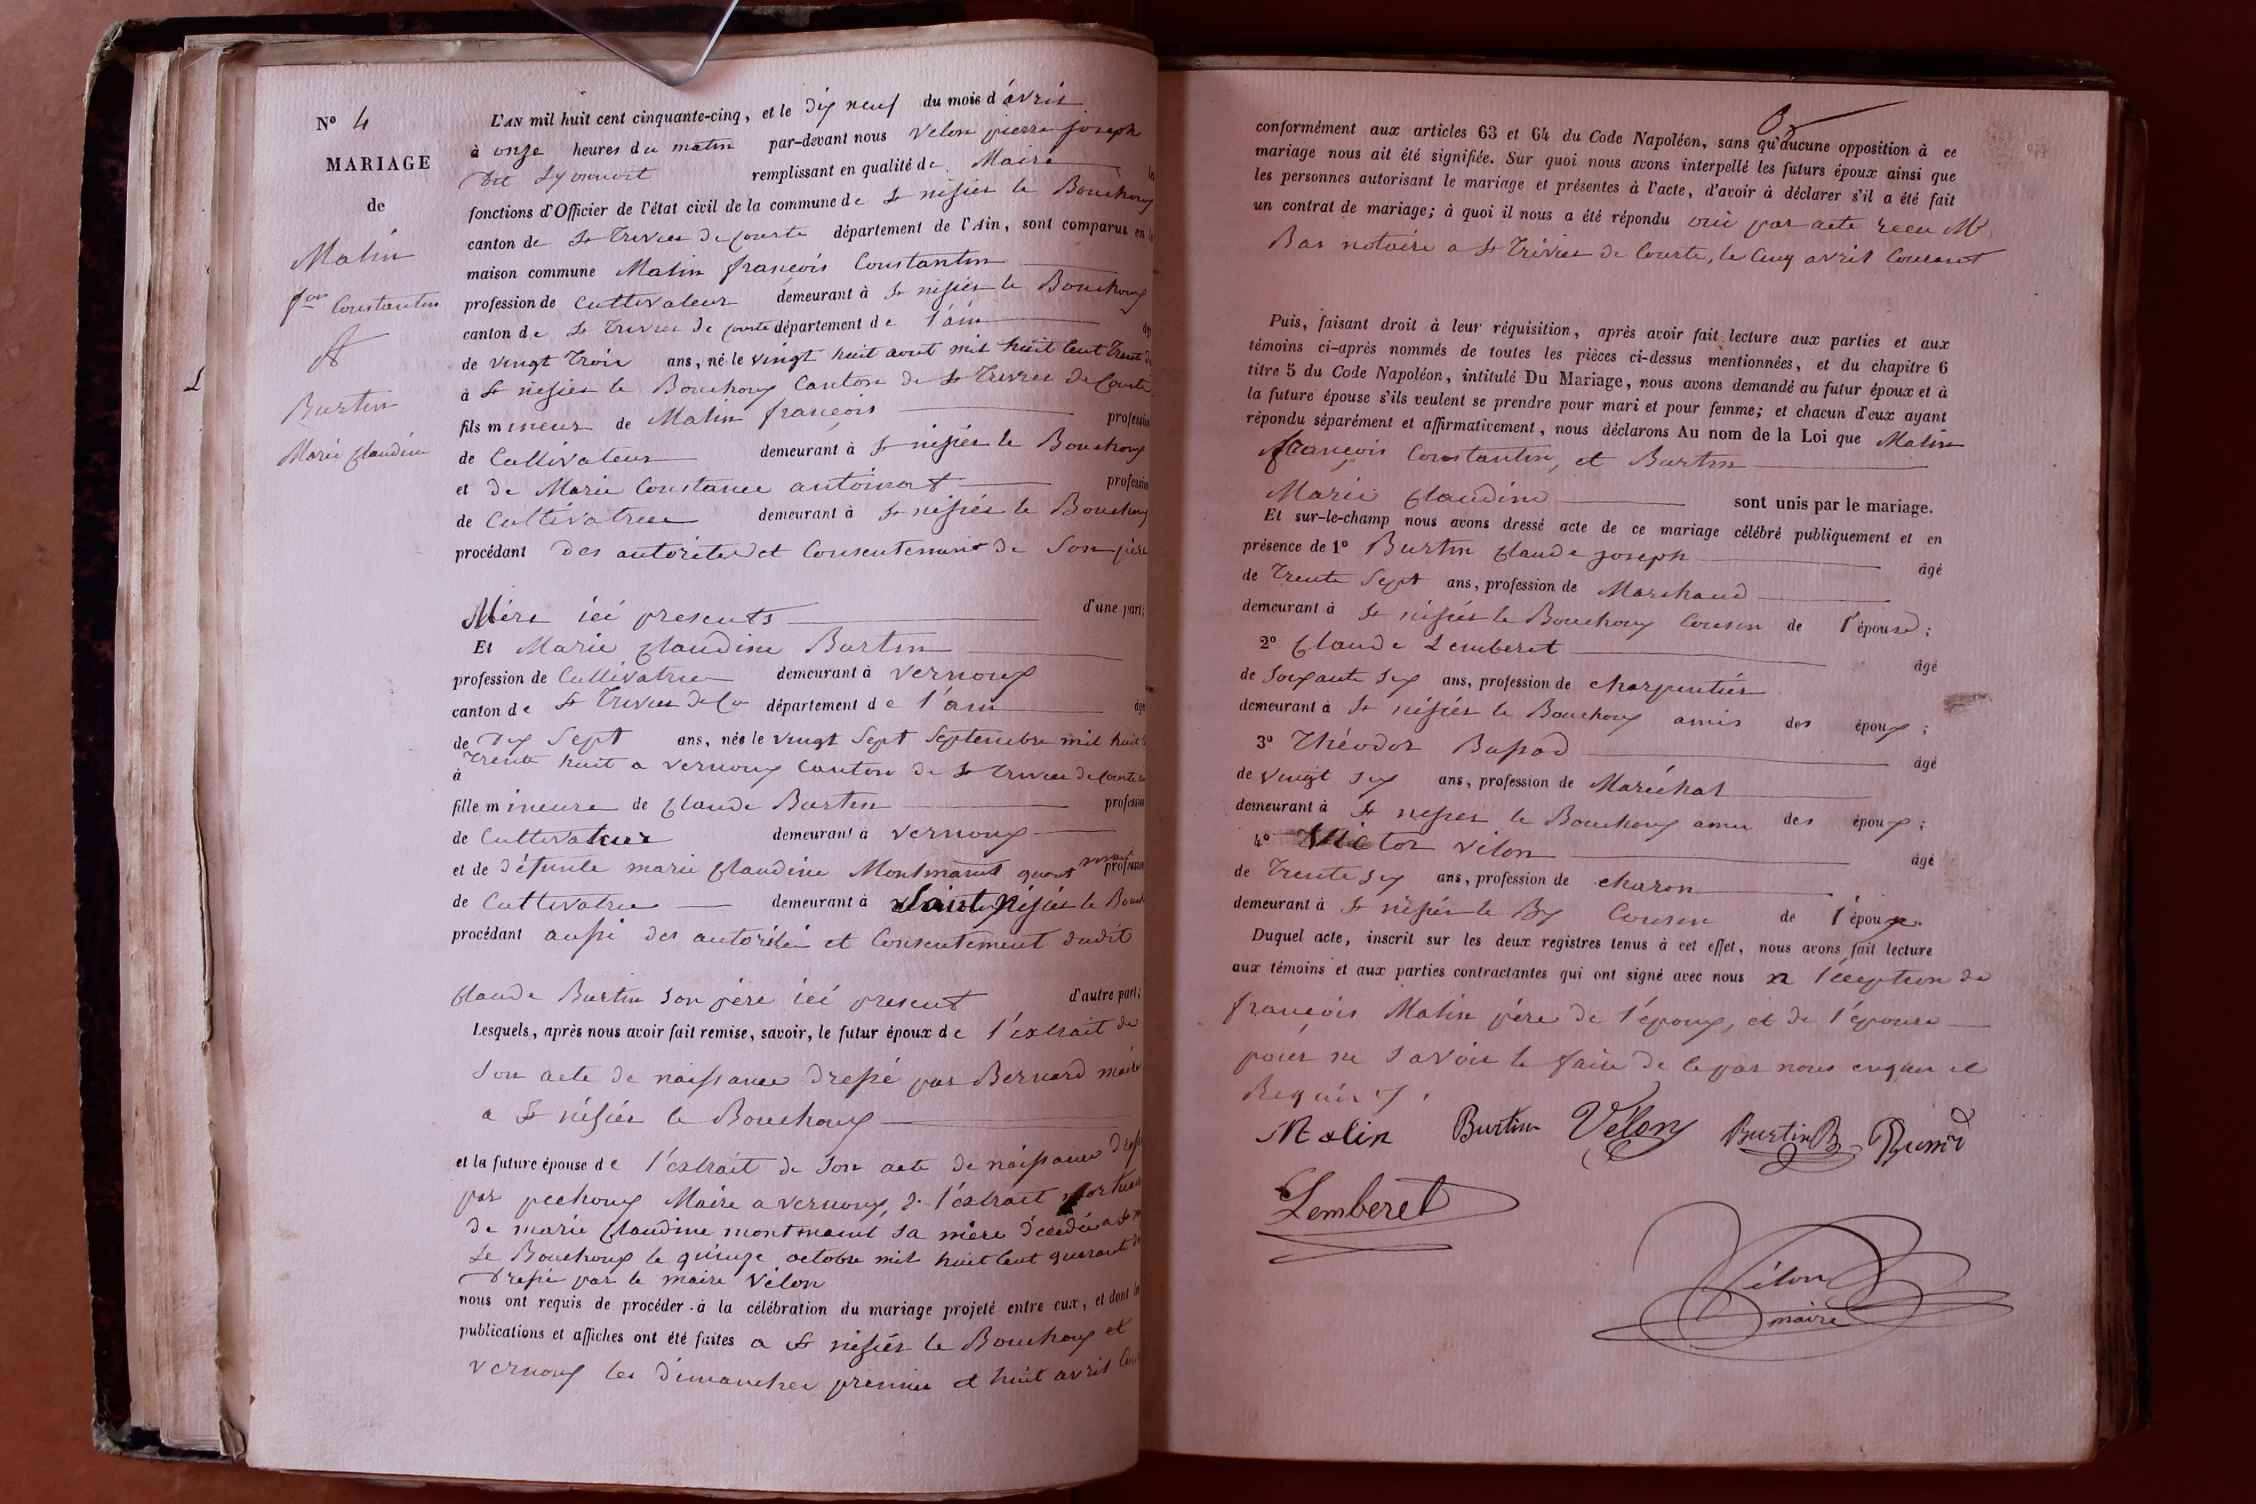 N° 4
MARIAGE
de
Matin
fois Constantin
et
Burtin
Marie Claudine
L'AN mil huit cent cinquante-cinq, et le dix neuf du mois d'avril
à onze heures du matin par-devant nous Velon pierre joseph
Dit Lyonnois remplissant en qualité de Maire les
fonctions d'Officier de l'état civil de la commune de St nisier le Bouchoux
canton de St Trivier de Courte département de l'Ain, sont comparus en la
maison commune Matin françois Constantin
profession de Cultivateur demeurant à St nisier le Bouchoux
canton de St Trivier de Courte département de l'ain
de vingt trois ans, né le vingt huit aout mil huit cent Trente
à St nisier le Bouchoux Canton de St Trivier de Courte
fils mineur de Matin françois profession
de Cultivateur demeurant à St nisier le Bouchoux
et de Marie Constance antoinat profession
de Cultivatrice demeurant à St nisier le Bouchoux
procédant des autorités et Consentement de Son père
Mère ici presents d'une part;
Et Marie Claudine Burtin
profession de Cultivatrice demeurant à vernoux
canton de St Trivier de Cte département de l'ain
de Dix Sept ans, née le vingt Sept Septembre mil huit
à Trente huit a vernoux canton de St Trivier de Courte
fille mineure de Claude Burtin profession
de Cultivateur demeurant à vernoux
et de défunte marie Claudine Montmaint quant vivait profession
de Cultivatrice demeurant à Saint Nisier le Bouch
procédant aussi des autorité et Consentement dudit
Claude Burtin son père ici present d'autre part;
Lesquels, après nous avoir fait remise, savoir, le futur époux de l'extrait de
Son acte de naissance Dressé par Bernard maire
a St nisier le Bouchoux
et la future épouse de l'extrait de Son acte de naissance
par pechoux Maire a vernoux, & l'extrait mortuaire
de marie Claudine montmaint sa mère décédée a St
le Bouchoux le quinze octobre mil huit cent quarante
Dressé par le maire Vélon
nous ont requis de procéder à la célébration du mariage projeté entre eux, et dont les
publications et affiches ont été faites a St nisier le Bouchoux et
vernoux les dimanches premier et huit avril
conformément aux articles 63 et 64 du Code Napoléon, sans qu'aucune opposition à ce
mariage nous ait été signifiée. Sur quoi nous avons interpellé les futurs époux ainsi que
les personnes autorisant le mariage et présentes à l'acte, d'avoir à déclarer s'il a été fait
un contrat de mariage; à quoi il nous a été répondu oui par acte recu Me
Bas notaire a St Trivier de Courte, le Cinq avril Courant
Puis, faisant droit à leur réquisition, après avoir fait lecture aux parties et aux
témoins ci-après nommés de toutes les pièces ci-dessus mentionnées, et du chapitre 6
titre 5 du Code Napoléon, intitulé Du Mariage, nous avons demandé au futur époux et à
la future épouse s'ils veulent se prendre pour mari et pour femme; et chacun d'eux ayant
répondu séparément et affirmativement, nous déclarons Au nom de la Loi que Matin
françois Constantin, et Burtin
Marie Claudine sont unis par le mariage.
Et sur-le-champ nous avons dressé acte de ce mariage célébré publiquement et en
présence de 1° Burtin Claude joseph âgé
de Trente Sept ans, profession de Marchand
demeurant à St nisier le Bouchoux Cousin de l'épouse;
2° Claude Lemberet âgé
de Soixante Six ans, profession de charpentier
demeurant à St nisier le Bouchoux amis des époux;
3° Théodor Bassod âgé
de vingt Six ans, profession de Maréchal
demeurant à St nisier le Bouchoux ami des époux;
4° Victor Vélon âgé
de Trente Six ans, profession de charon
demeurant à St nisier le Bx Cousin de l'époux.
Duquel acte, inscrit sur les deux registres tenus à cet effet, nous avons fait lecture
aux témoins et aux parties contractantes qui ont signé avec nous a l'éxeption de
françois Matin père de l'époux, et de l'épouse
pour ne savoir le faire de ce par nous enquis et
Requis
Matin Burtin Velon Burtin B
Lemberet
Vélon
maire